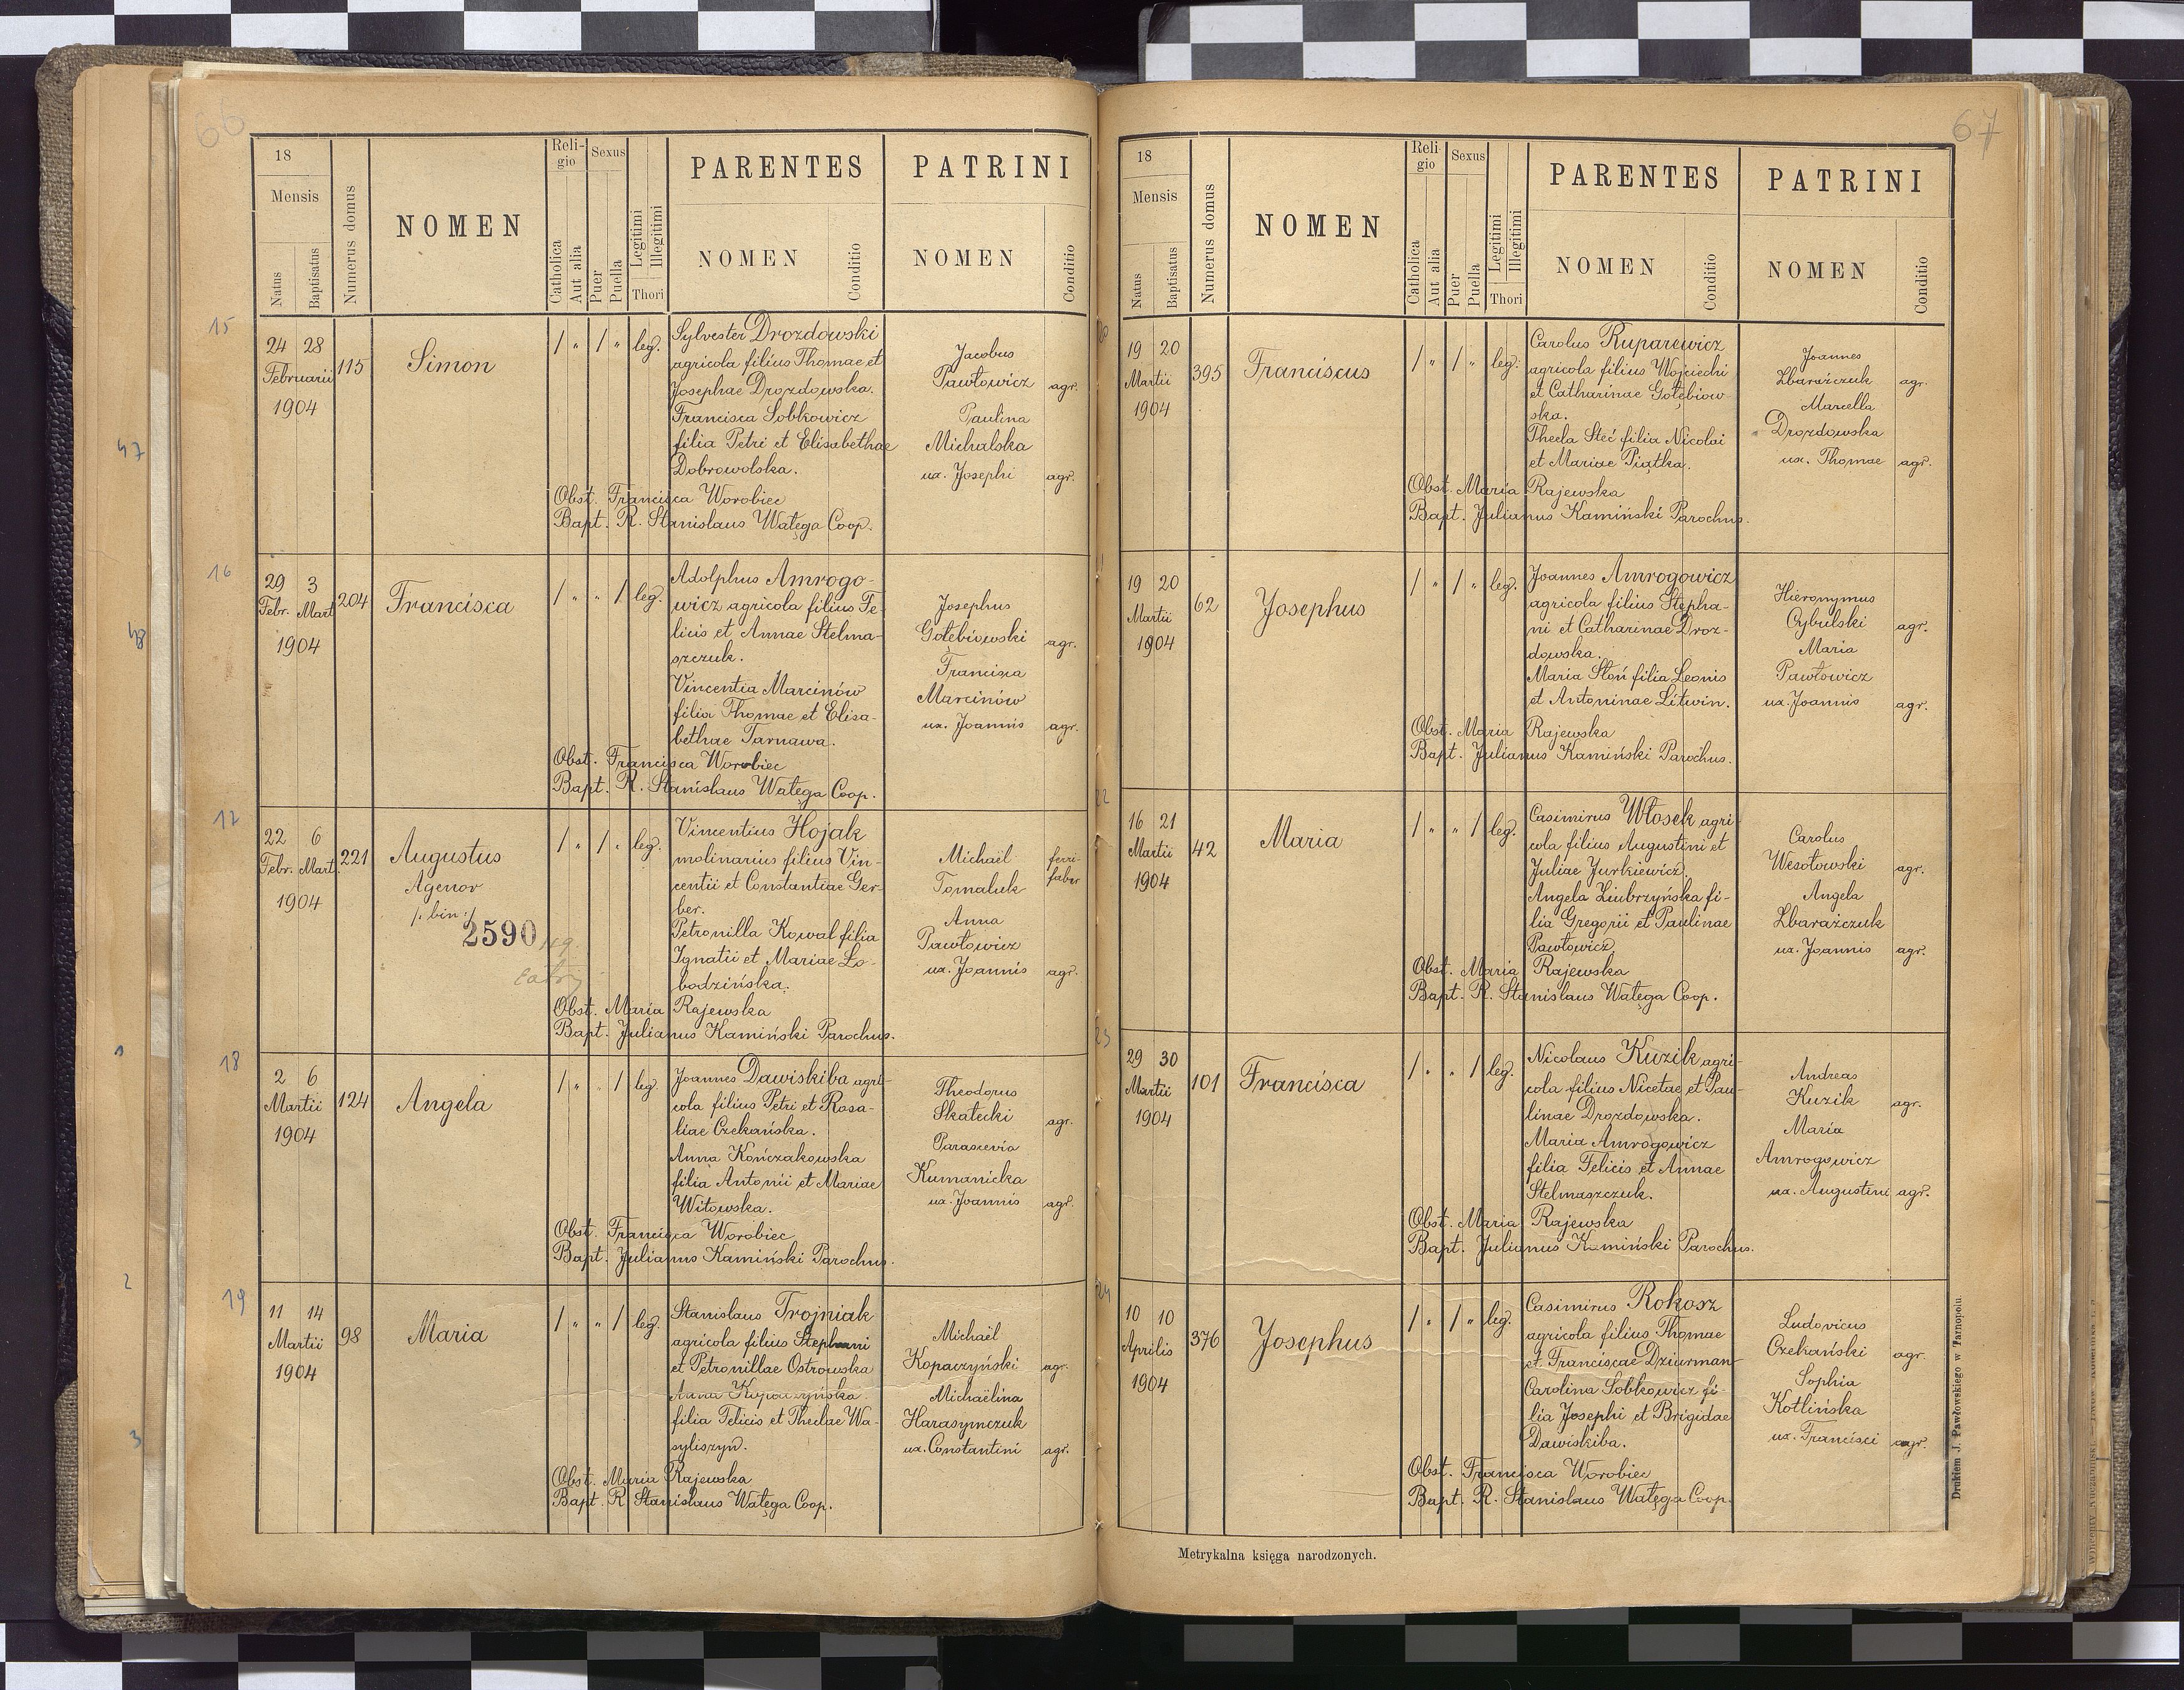 66
18
Mensis
Natus
Baptisatus
Numerus domus
NOMEN
Reli-
gio
Catholica
Aut alia
Sexus
Puer
Puella
Legitimi
Illegitimi
Thori
PARENTES
NOMEN
Conditio
PATRINI
NOMEN
Conditio
15
24 28
Februarii
1904
115
Simon
/ „ / „ leg.
Sylvester Drozdowski
agricola filius Thomae et
Josephae Drozdowska.
Francisca Sobkowicz
filia Petri et Elisabethae
Dobrowolska.
Jacobus
Pawłowicz agr.
Paulina
Michalska
ux. Josephi agr.
Obst. Francisca Worobiec
Bapt. R. Stanislaus Watęga Coop.
47
16
29 3
Febr. Mart.
1904
204
Francisca
/ „ „ / leg.
Adolphus Amrogo-
wicz agricola filius Fe-
licis et Annae Stelma-
szczuk.
Vincentia Marcinów
filia Thomae et Elisa-
bethae Tarnawa.
Josephus
Gołębiowski agr.
Francisca
Marcinów
ux. Joannis agr.
Obst. Francisca Worobiec
Bapt. R. Stanislaus Watęga Coop.
48
17
22 6
Febr. Mart.
1904
221
Augustus
Agenor
/: bin :/
2590
/ „ / „ leg.
Vincentius Hojak
molinarius filius Vin-
centii et Constantiae Ger-
ber.
Petronilla Kowal filia
Ignatii et Mariae Lo-
bodzińska.
Michaël ferri-
Tomaluk faber
Anna
Pawłowicz
ux. Joannis agr.
Obst. Maria Rajewska
Bapt. Julianus Kamiński Parochus.
18
2 6
Martii
1904
124
Angela
/ „ „ / leg.
Joannes Dawiskiba agri-
cola filius Petri et Rosa-
liae Czekańska.
Anna Kończakowska
filia Antonii et Mariae
Witowska.
Theodorus
Skałecki agr.
Parascevia
Kumanicka
ux. Joannis agr.
Obst. Francisca Worobiec
Bapt. Julianus Kamiński Parochus.
2
19
11 14
Martii
1904
98
Maria
/ „ „ / leg.
Stanislaus Trojniak
agricola filius Stephani
et Petronillae Ostrowska
Anna Kopaczyńska
filia Felicis et Theclae Wa-
syliszyn.
Michaël
Kopaczyński agr.
Michaëlina
Harasymczuk
ux. Constantini agr.
Obst. Maria Rajewska
Bapt. R. Stanislaus Watęga Coop.
3
67
18
Mensis
Natus
Baptisatus
Numerus domus
NOMEN
Reli-
gio
Catholica
Aut alia
Sexus
Puer
Puella
Legitimi
Illegitimi
Thori
PARENTES
NOMEN
Conditio
PATRINI
NOMEN
Conditio
19 20
Martii
1904
395
Franciscus
/ „ / „ leg.
Carolus Ruparewicz
agricola filius Wojciechi
et Catharinae Gołębiow-
ska.
Thecla Steć filia Nicolai
et Mariae Piątka.
Joannes
Zbarażczuk agr.
Marcella
Drozdowska
ux. Thomae agr.
Obst. Maria Rajewska
Bapt. Julianus Kamiński Parochus.
19 20
Martii
1904
62
Josephus
/ „ / „ leg.
Joannes Amrogowicz
agricola filius Stepha-
ni et Catharinae Droz-
dowska.
Maria Słoń filia Leonis
et Antoninae Litwin.
Hieronymus
Cybulski agr.
Maria
Pawłowicz
ux. Joannis agr.
Obst. Maria Rajewska
Bapt. Julianus Kamiński Parochus.
22
16 21
Martii
1904
42
Maria
/ „ „ / leg.
Casimirus Włosek agri-
cola filius Augustini et
Juliae Jurkiewicz.
Angela Ziubrzyńska fi-
lia Gregorii et Paulinae
Pawłowicz.
Carolus
Wesołowski agr.
Angela
Zbarażczuk
ux. Joannis agr.
Obst. Maria Rajewska
Bapt. R. Stanislaus Watęga Coop.
23
29 30
Martii
1904
101
Francisca
/ „ „ / leg.
Nicolaus Kuzik agri-
cola filius Nicetae et Pau-
linae Drozdowska.
Maria Amrogowicz
filia Felicis et Annae
Stelmaszczuk.
Andreas
Kuzik agr.
Maria
Amrogowicz
ux. Augustini agr.
Obst. Maria Rajewska
Bapt. Julianus Kamiński Parochus.
24
10 10
Aprilis
1904
376
Josephus
/ „ / „ leg.
Casimirus Rokosz
agricola filius Thomae
et Franciscae Dziurman-
Carolina Sobkowicz fi-
lia Josephi et Brigidae
Dawiskiba.
Ludovicus
Czekański agr.
Sophia
Kotlińska
ux. Francisci agr.
Obst. Francisca Worobiec
Bapt. R. Stanislaus Watęga Coop.
Metrykalna księga narodzonych.
Drukiem J. Pawłowskiego w Tarnopolu.